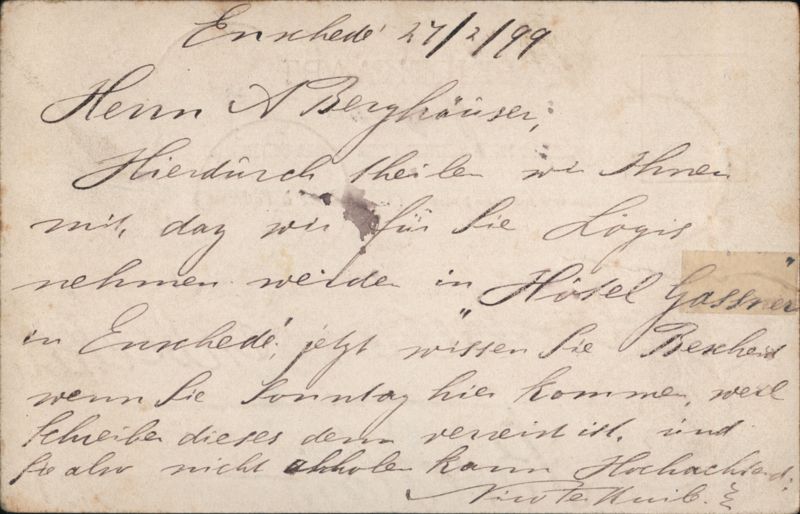 Enschedé 27/2/99
Herrn A Berghäuser,
Hierdürch theilen wir Ihnen
mit, daß wir für Sie Logis
nehmen werden in „Hôtel Gassner"
in Enschedé, jetzt wissen Sie Bescheid
wenn Sie Sonntag hier kommen, weil
Schreiber dieses dann verreist ist, und
Sie also nicht abholen kann Hochachtend:
Nico